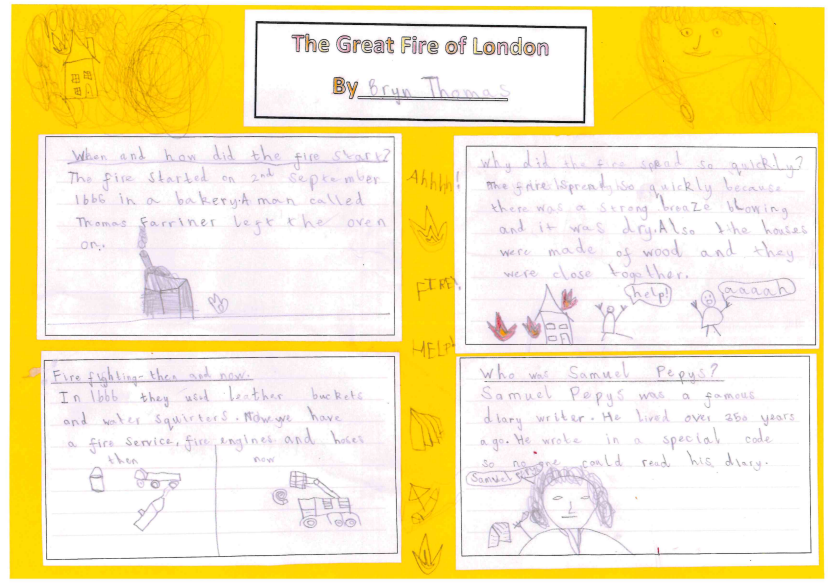 The Great Fire of London
By Bryn Thomas
When and how did the fire start?
The fire started on 2nd September
1666 in a bakery. A man called
Thomas Farriner left the oven
on.
Ahhhh!
FIRE!
HELP!
Why did the fire spread so quickly?
The fire spread so quickly because
there was a strong breaze blowing
and it was dry. Also the houses
were made of wood and they
were close together.
help!
aaaah
Fire fighting-then and now.
In 1666 they used leather buckets
and water squirters. Now we have
a fire service, fire engines and hoses
then
now
Who was Samuel Pepys?
Samuel Pepys was a famous
diary writer. He lived over 350 years
ago. He wrote in a special code
so no one could read his diary.
Samuel